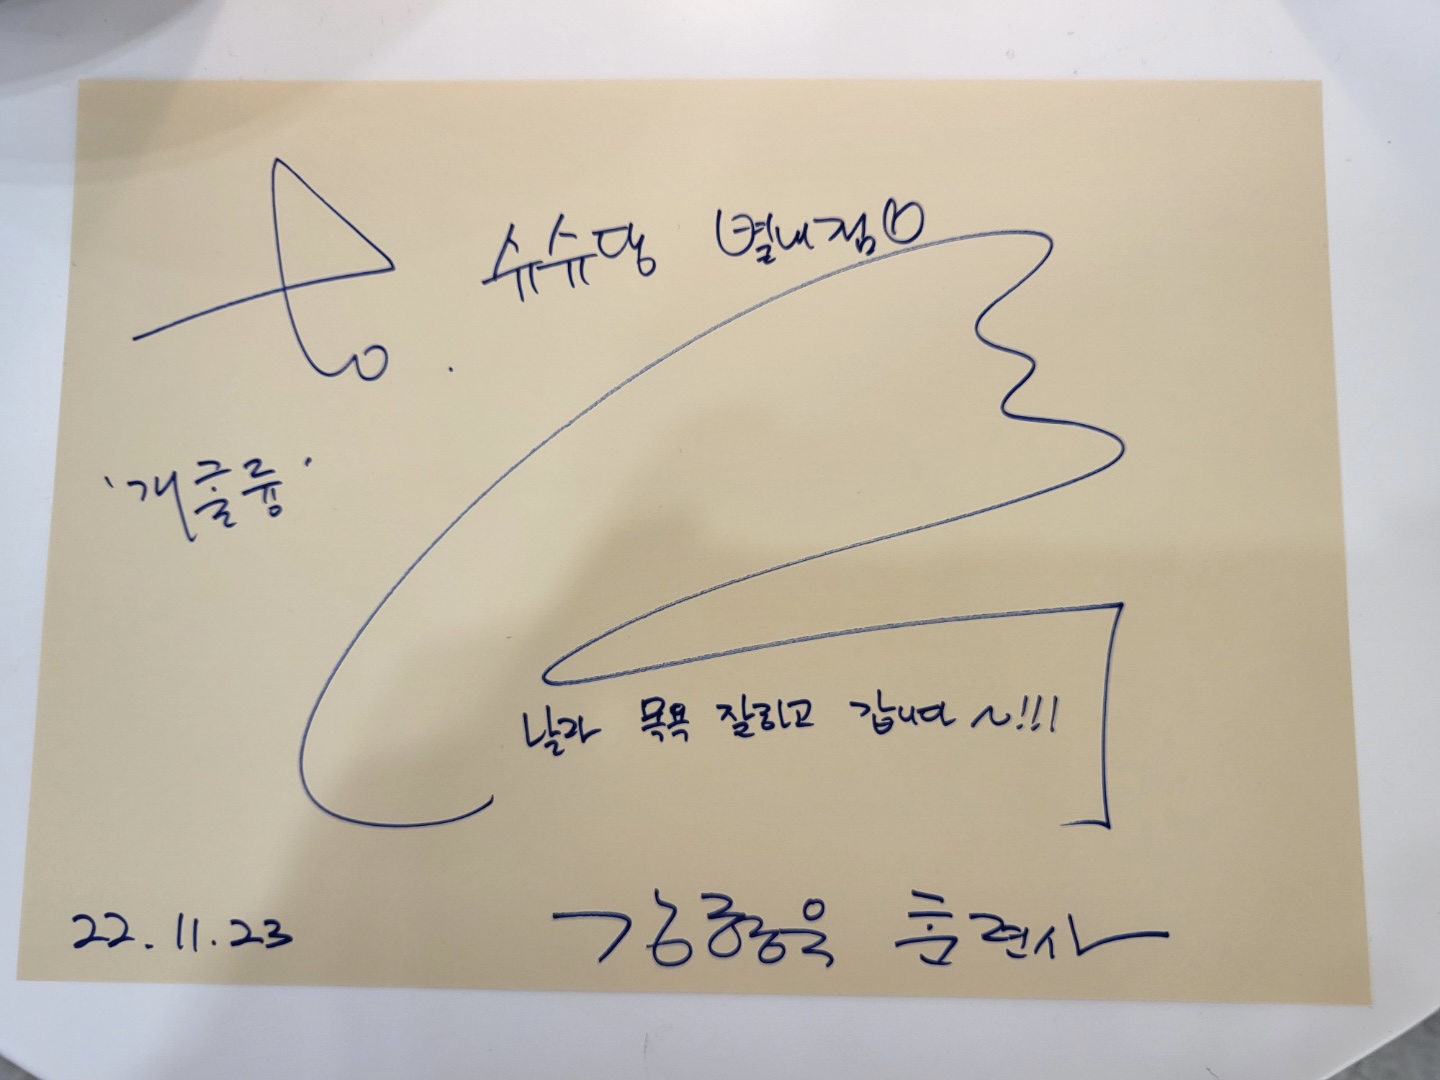 To. 슈슈당 별내점♡
'개훌륭'
날라 목욕 잘하고 갑니다~!!!
22.11.23 강형욱 훈련사